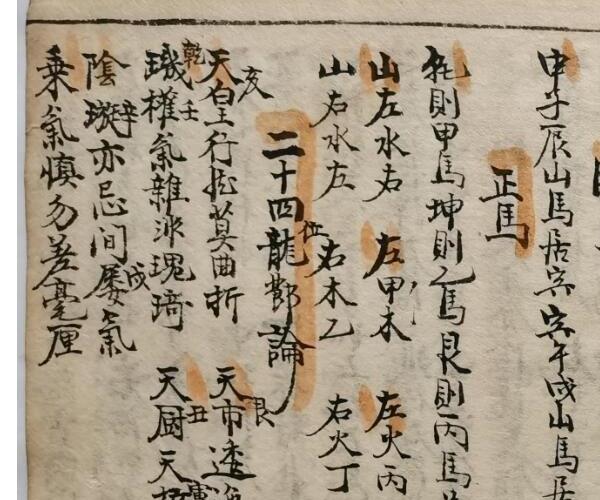 申子辰山馬居寅 寅午戌山馬居
正馬
則甲馬坤則乙馬艮則丙馬
山左水右 左甲木 左火丙
山右水左 右木乙 右火丁
二十四龍鄞論
天皇亥行龙莫曲折 天市艮透
璣乾權壬氣雜派瑰琦 天厨丑天
陰璇辛亦忌间屡戌氣
乘氣慎勿差毫厘